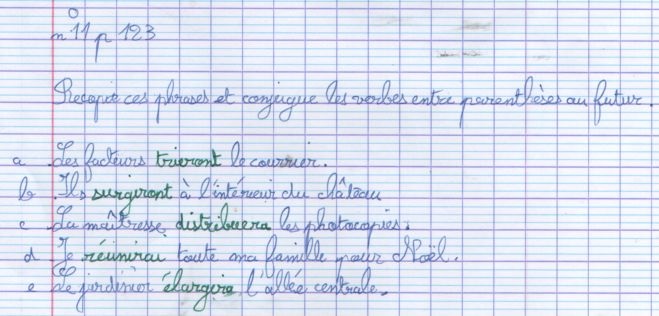 n°11 p 123
Recopie ces phrases et conjugue les verbes entre parenthèses au futur.
a Les facteurs trieront le courrier.
b Ils surgiront à l'intérieur du château
c La maîtresse distribuera les photocopies.
d Je réunirai toute ma famille pour Noël.
e Le jardinier élargira l'allée centrale.